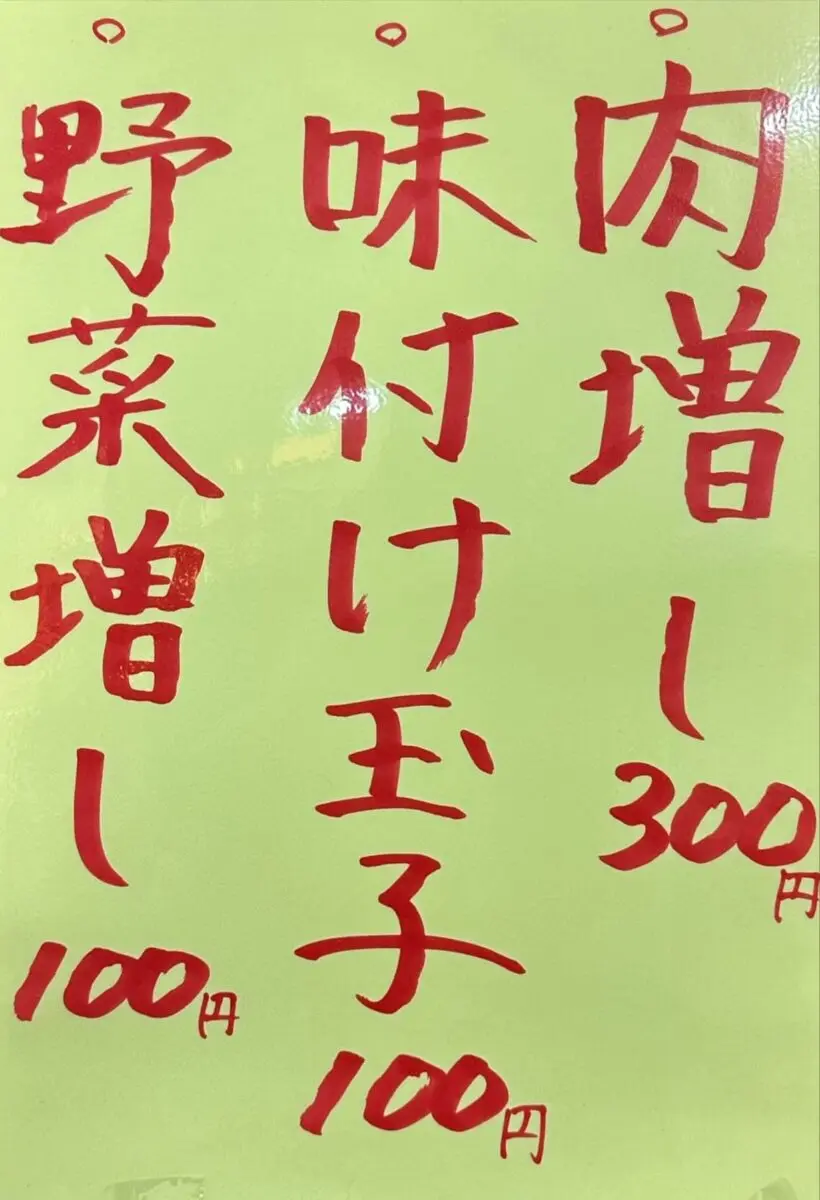 ○肉増し300円
○味付け玉子100円
○野菜増し100円